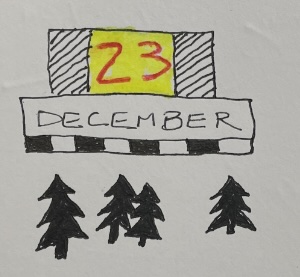 23
DECEMBER